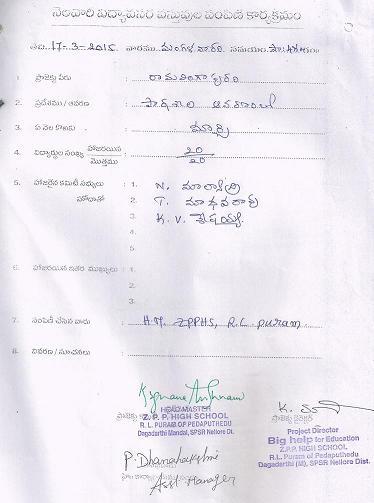 నెలవారి విద్యావసర వస్తువుల పంపిణీ కార్యక్రమం
తేది. 17-3-2015 వారము మంగళవారం సమయం
1. ప్రాజెక్టు పేరు : రామలింగాపురం
2. ప్రదేశము / ఆవరణ : పాఠశాల ఆవరణ
3. ఏ నెల కొరకు : మార్చి
4. విద్యార్థుల సంఖ్య హాజరయిన / మొత్తము : 20 / 20
5. హాజరైన కమిటీ సభ్యులు : 1. N.
హోదాతో 2. T. మాధవరావు
3. K. V. శేషయ్య
4.
5.
6. హాజరయిన ఇతర ముఖ్యులు : 1.
2.
3.
7. పంపిణీ చేసిన వారు : HM ZPPHS, R.L. Puram
8. వివరణ / సూచనలు :
HEAD MASTER
Z.P.P. HIGH SCHOOL
R.L. PURAM OF PEDAPUTHEDU
Dagadarthi Mandal, SPSR Nellore Dt.
K.
ప్రాజెక్టు డైరెక్టర్
Project Director
Big help for Education
Z.P.P. HIGH SCHOOL
R.L. Puram of Pedaputhedu
Dagadarthi (M), SPSR Nellore Dist.
P. Dhanalakshmi
Asst Manager